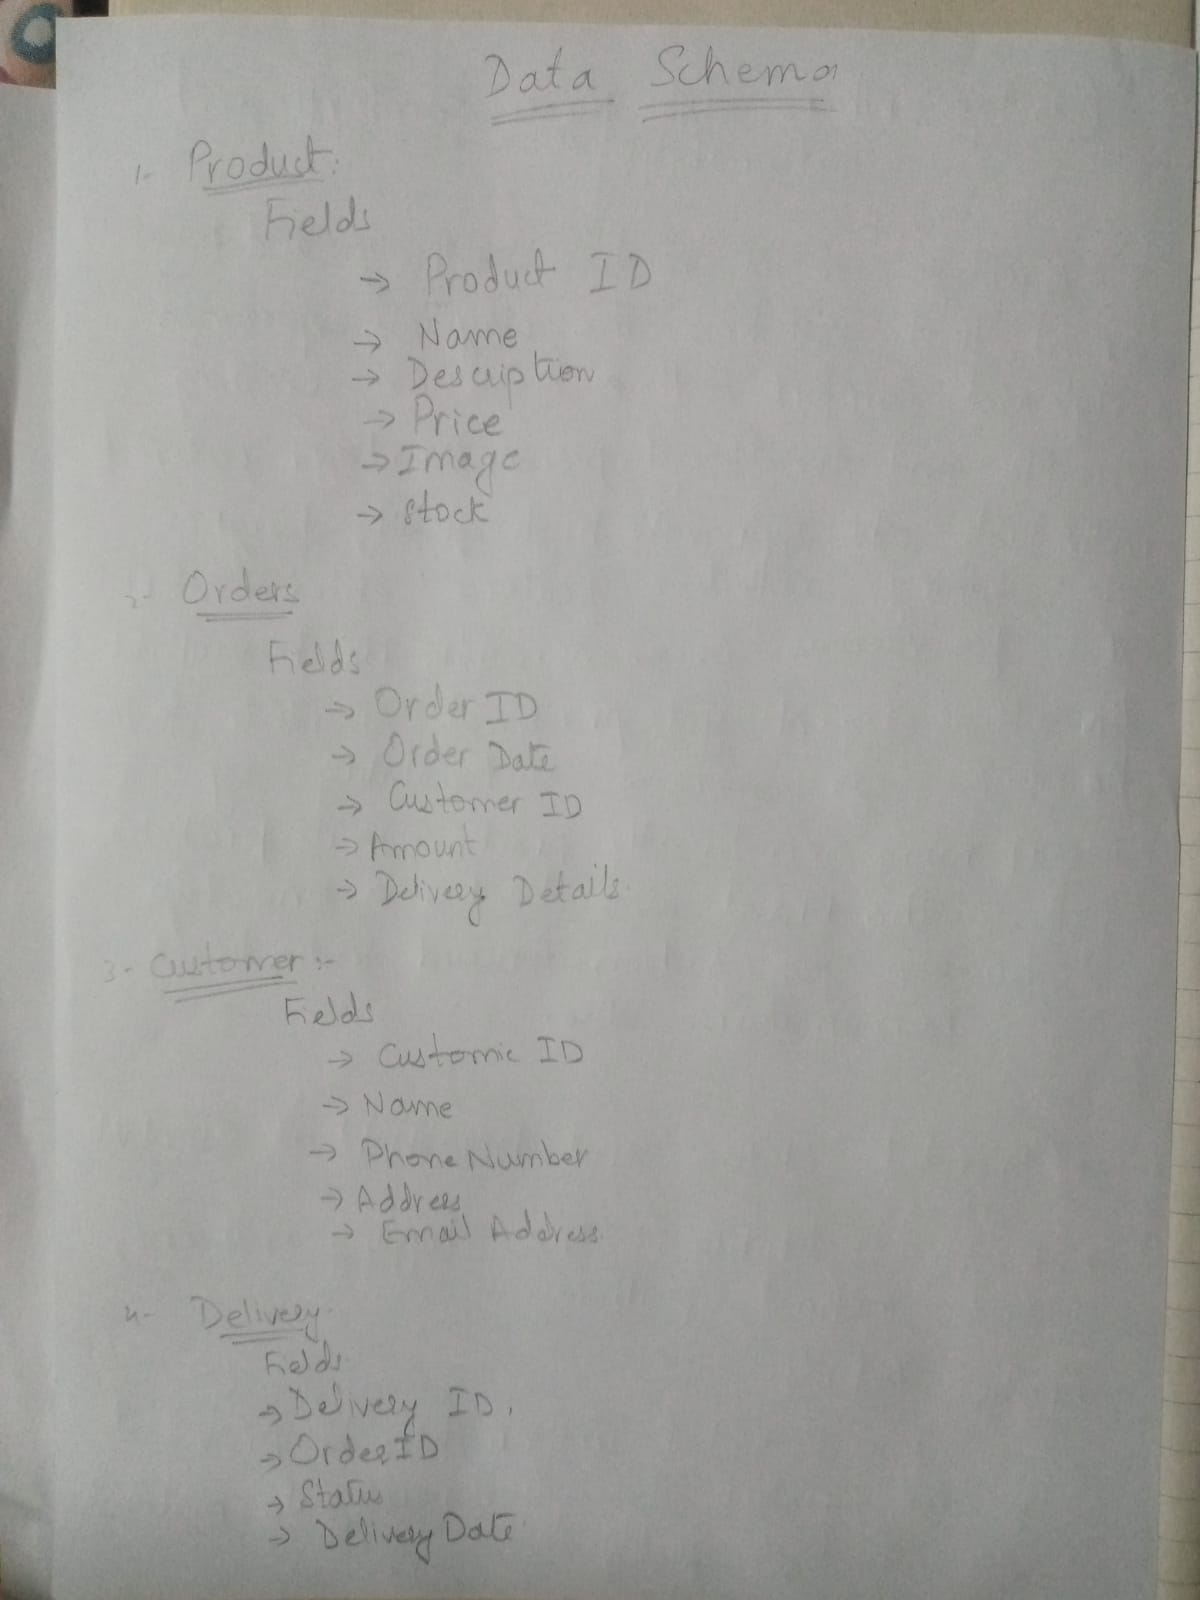 Data Schema
1- Product:
Fields
→ Product ID
→ Name
→ Description
→ Price
→ Image
→ Stock
2- Orders
Fields
→ Order ID
→ Order Date
→ Customer ID
→ Amount
→ Delivery Details.
3- Customer :-
Fields
→ Customer ID
→ Name
→ Phone Number
→ Address
→ Email Address.
4- Delivery.
Fields.
→ Delivery ID.
→ Order ID
→ Status
→ Delivery Date.